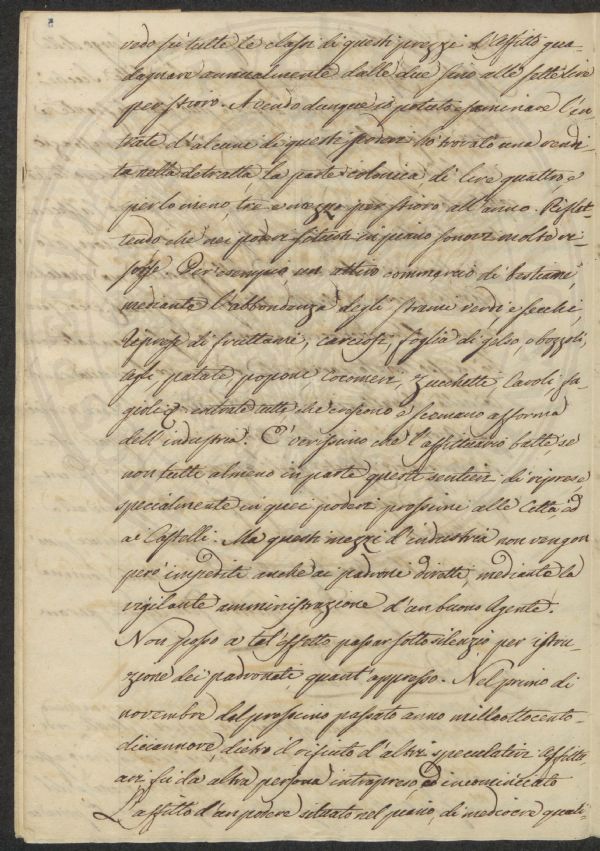 vedo sù tutte le classi di questi prezzi l'affitto gua-
dagnare annualmente dalle due sino alle sette lire
per stioro. Avendo dunque io potuto esaminare l'en-
trate d'alcuni di questi poderi ho trovato una rendi-
ta netta detratta la parte colonica di lire quattro, e
per lo meno, tre e mezzo per stioro all'anno. Riflet-
tendo che nei poderi situati in piano sonovi molte ri-
sorse. Per esempio, un attivo commercio di bestiami,
mediante l'abbondanza degli strami verdi e secchi,
riprese di fruttami, carciofi, foglia di gelso, o bozzoli,
agli, patate, poponi, cocomeri, zucchetti, cavoli, fa-
gioli, entrate tutte che crescono e scemano a forma
dell'industria. È verissimo che l'affittuario batte se
non tutti almeno in parte questi sentieri di riprese
specialmente in quei poderi prossimi alle Città, ed
ai Castelli. Ma questi mezzi d'industria non vengon
però impediti anche ai padroni diretti, mediante la
vigilante amministrazione d'un buono Agente.
Non posso a tal'effetto passar sotto silenzio per istru-
zione dei padronati quant'appresso. Nel primo di
novembre del prossimo passato anno milleottocento-
diciannove, dietro il rifiuto d'altri speculativi affittu-
ari fù da altra persona intrapreso, ed incominciato
L'affitto d'un podere situato nel piano, di mediocre quali-